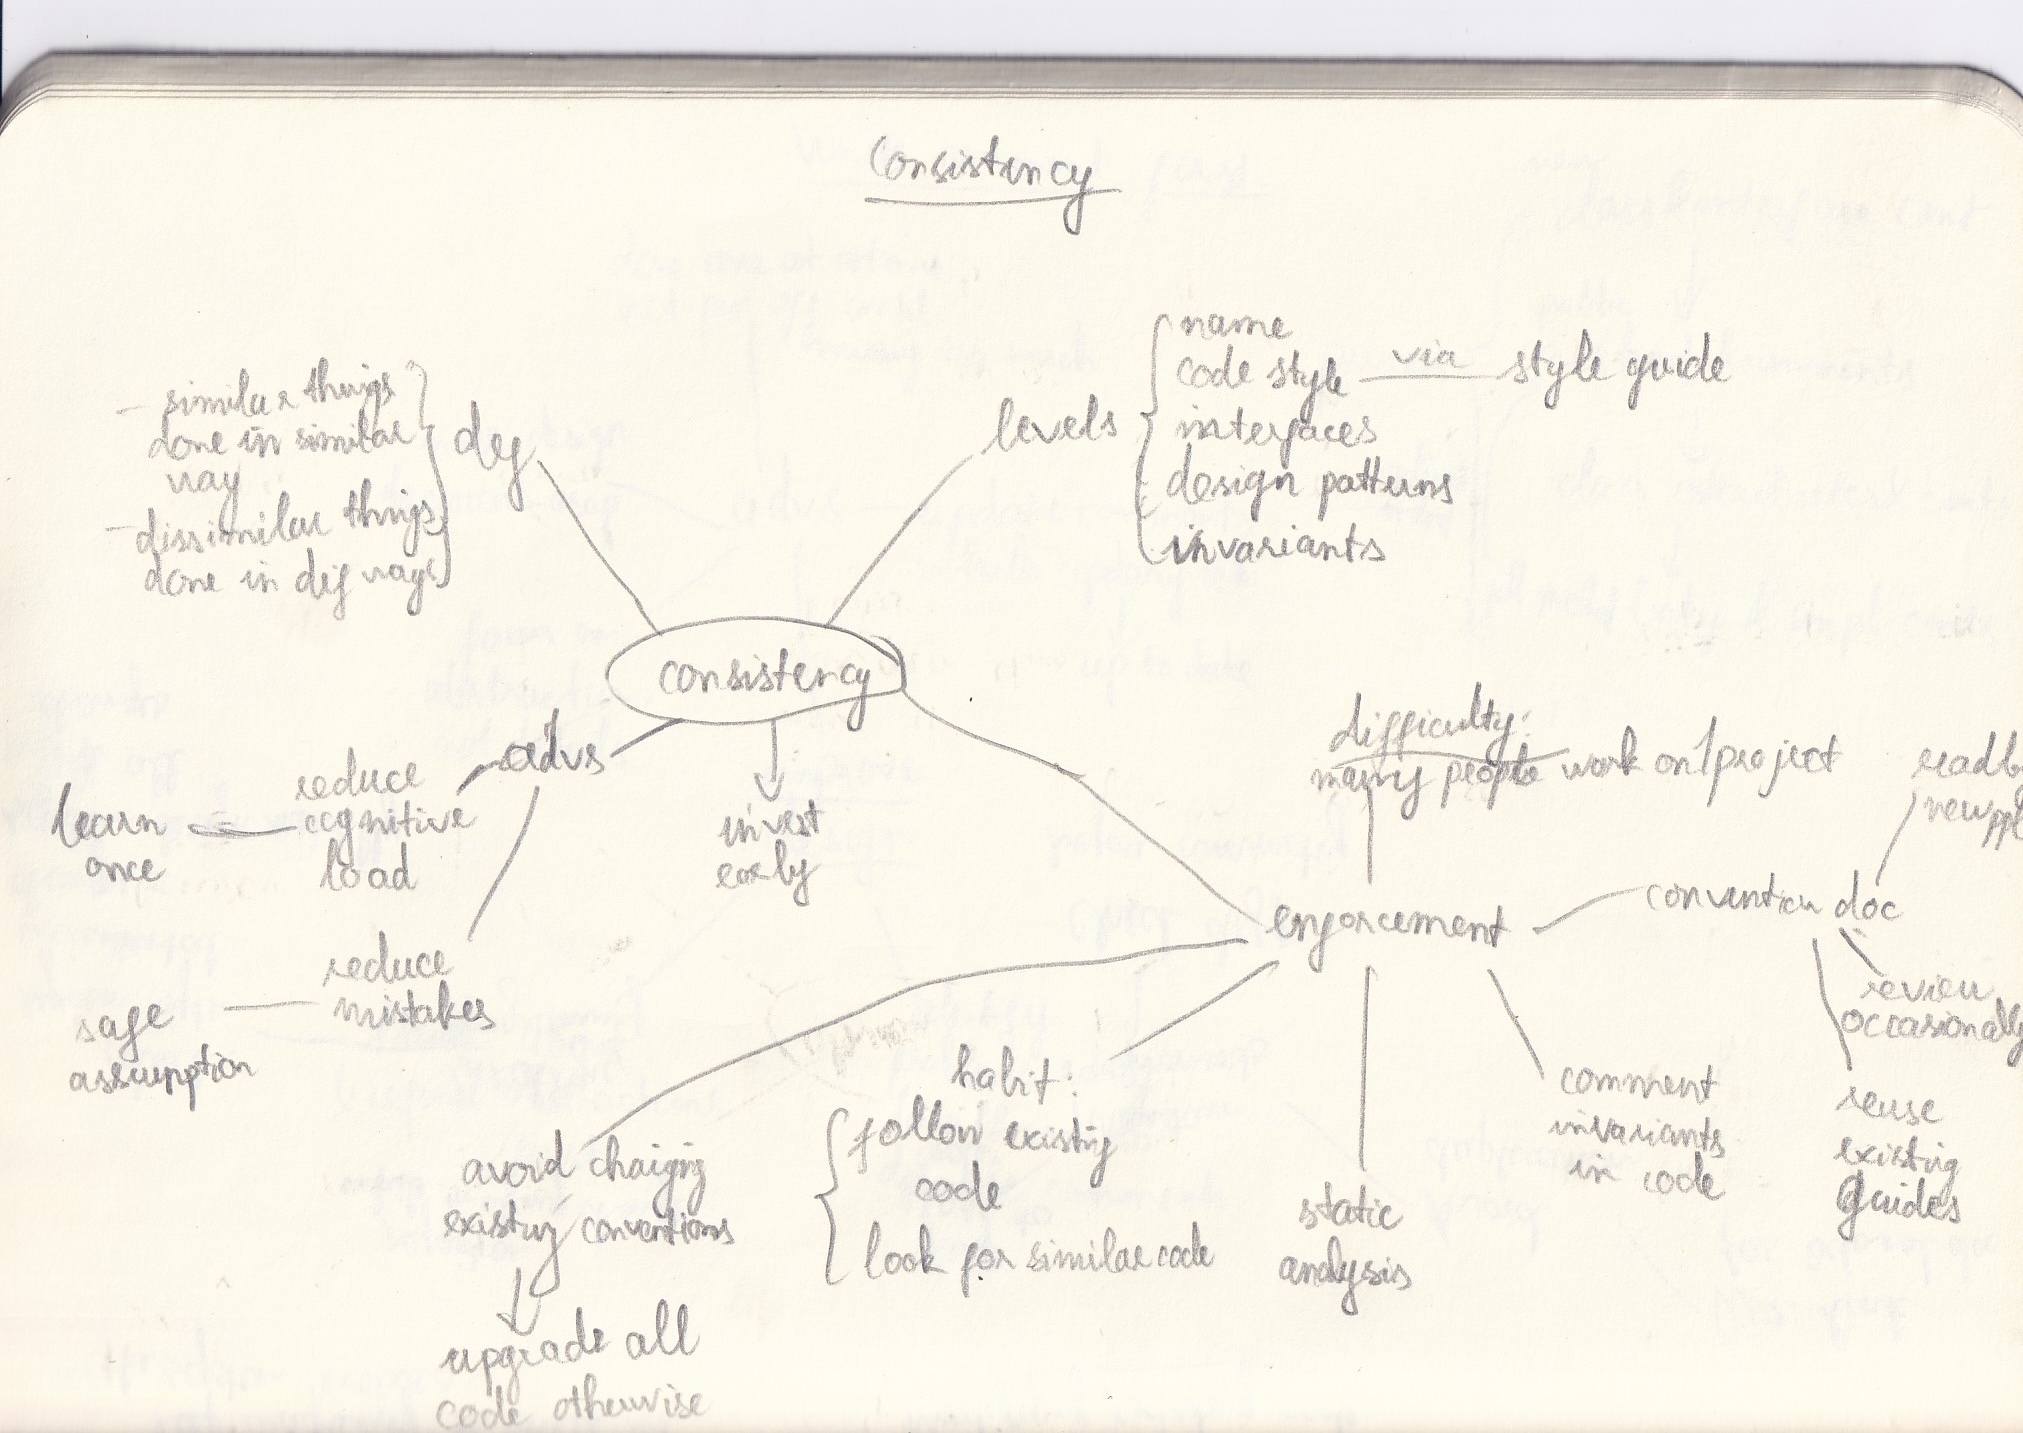 consistency
- similar things
done in similar
way
- dissimilar things
done in dif ways
def
levels
name
code style via style guide
interfaces
design patterns
invariants
consistency
advs
reduce
cognitive
load
learn
once
reduce
mistakes
safe
assumption
invest
early
difficulty:
many people work on 1 project
enforcement
convention doc
read by
new ppl
review
occasionally
reuse
existing
guides
comment
invariants
in code
static
analysis
habit:
follow existing
code
look for similar code
avoid changing
existing conventions
upgrade all
code otherwise